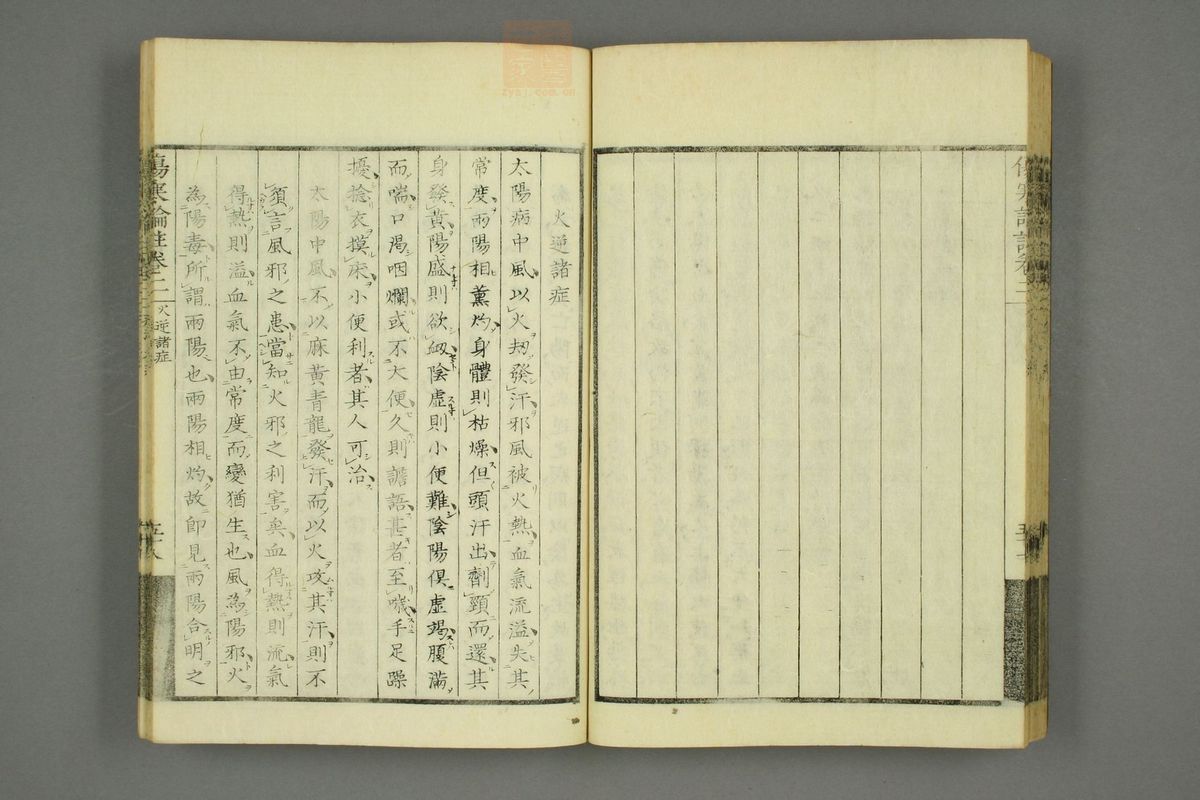 傷寒論註卷二
火逆諸症
太陽病中風以火刼發汗邪風被火熱血氣流溢失其
常度兩陽相薰灼身體則枯燥但頭汗出劑頸而還其
身發黃陽盛則欲衂陰虛則小便難陰陽俱虛竭腹滿
而喘口渴咽爛或不大便久則譫語甚者至噦手足躁
擾捻衣摸床小便利者其人可治
太陽中風不以麻黃青龍發汗而以火攻其汗則不
須言風邪之患當知火邪之利害矣血得熱則流氣
得熱則溢血氣不由常度而變猶生也風為陽邪火
為陽毒所謂兩陽也兩陽相灼故即見兩陽合明之
傷寒論註卷二
火逆諸症
五十八
zysj.com.cn